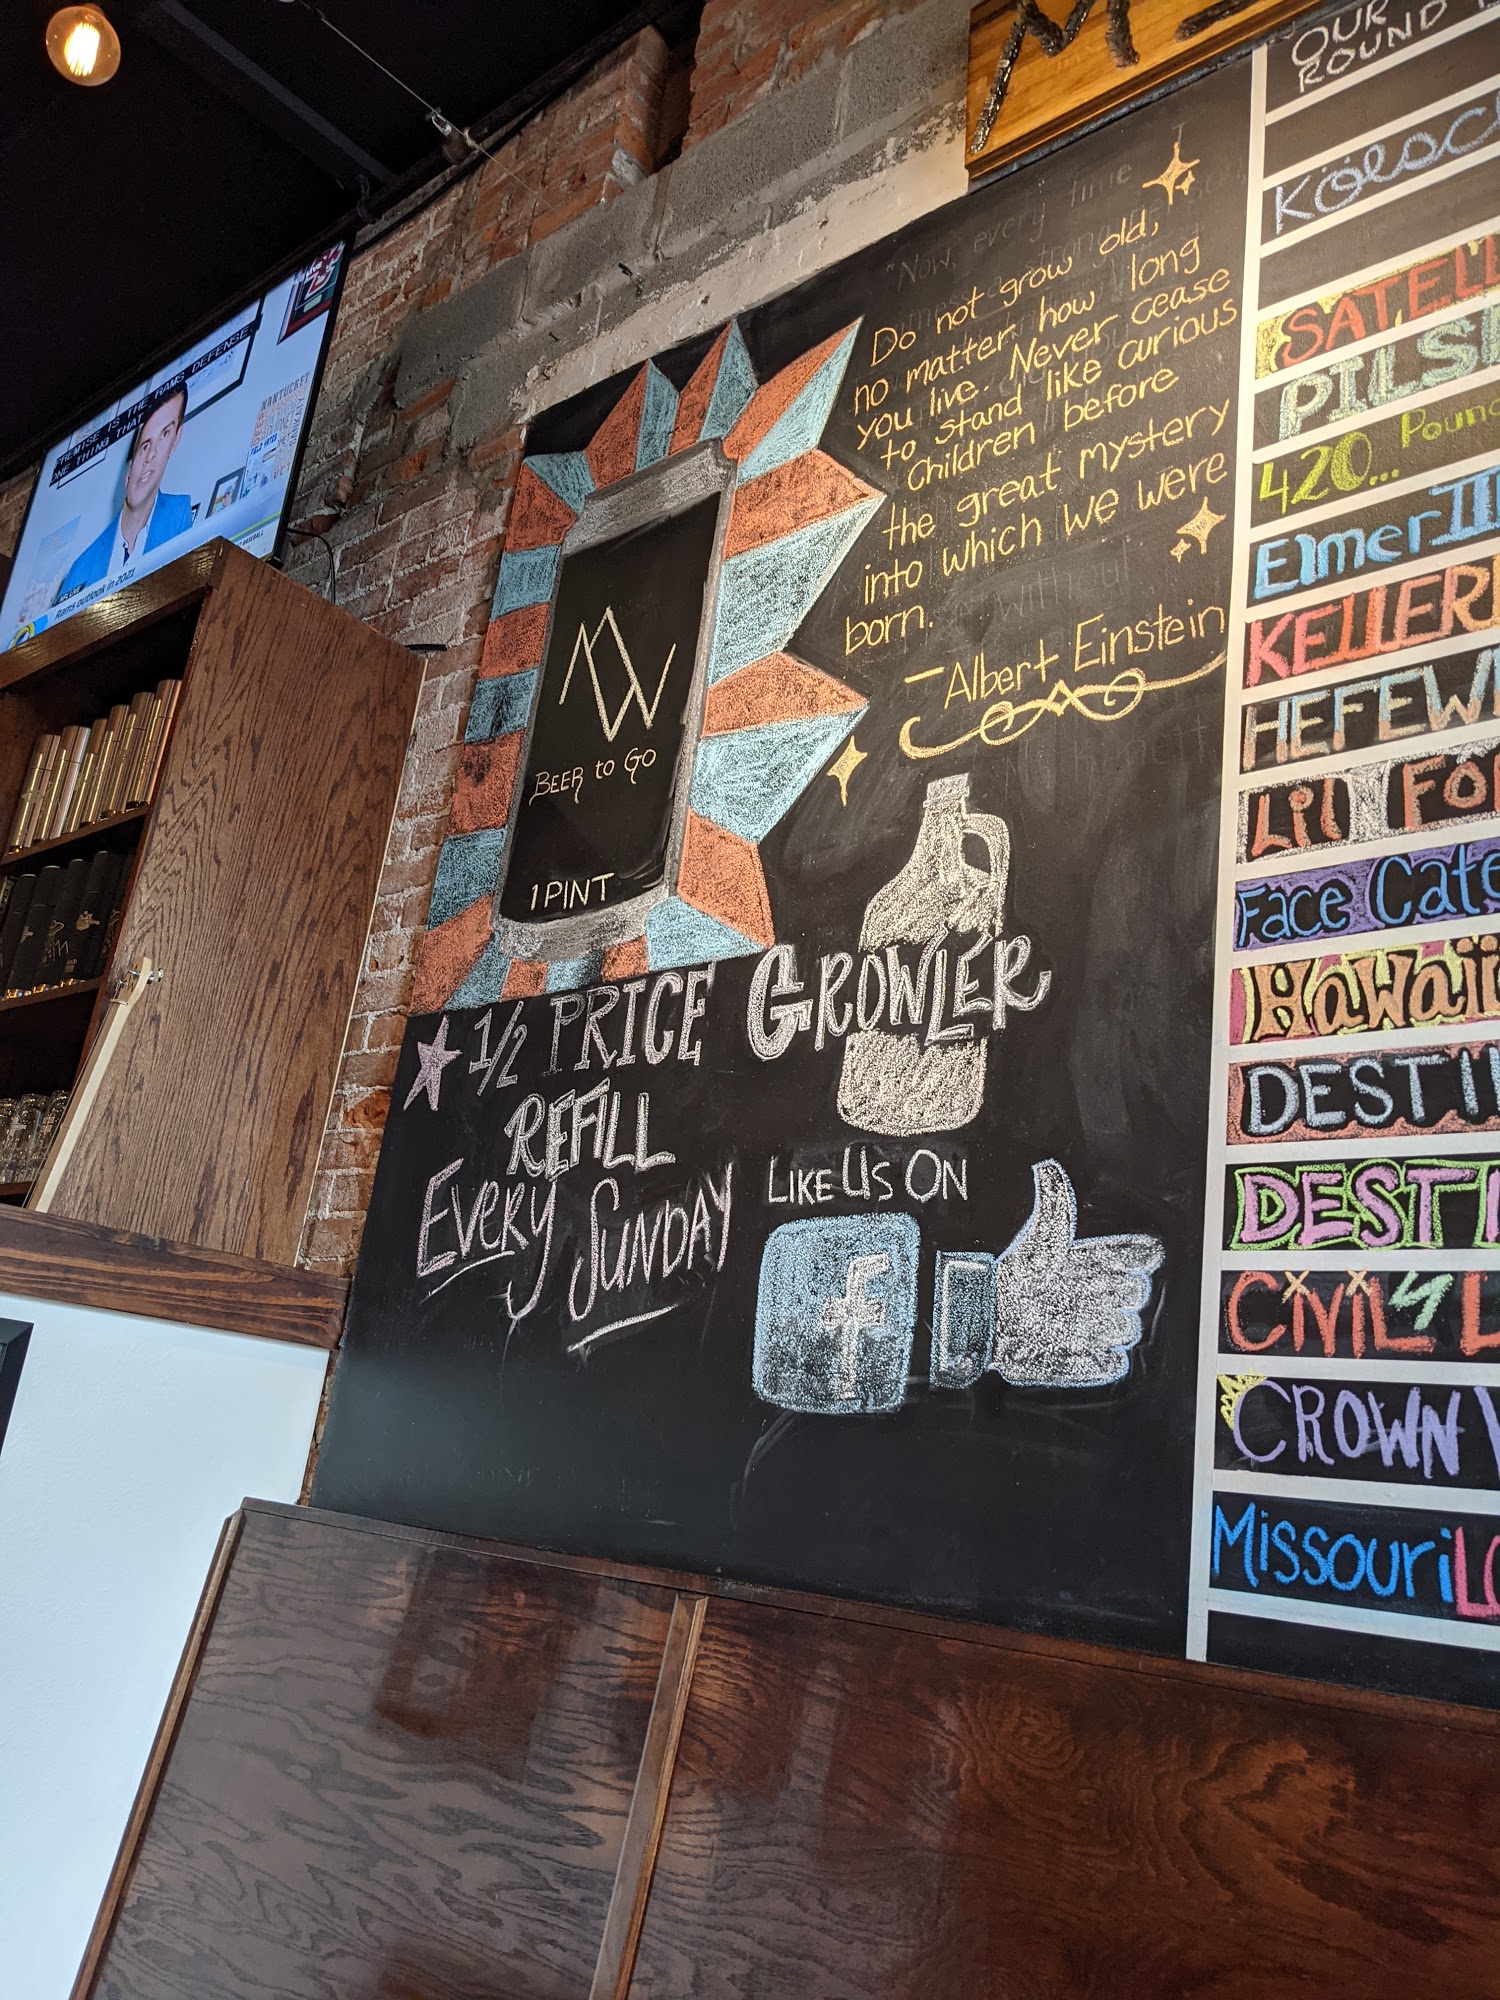 PREMISE IS THE RAMS DEFENSE
ONE THING THAT
NANTUCKET
Rams outlook in 2021
"Now, every time I
Do not grow old,
no matter how long
you live. Never cease
to stand like curious
Children before
the great mystery
into which we were
born.
without
—Albert Einstein
MW
BEER to GO
1 PINT
1/2 PRICE GROWLER
REFILL
EVERY SUNDAY
LIKE US ON
f
OUR
ROUND
KÖLSCH
SATELL
PILS
420... Pound
Elmer III
KELLER
HEFEW
Lil FO
FACE Cate
HAWAII
DESTI
DESTI
CIVIL L
CROWN
MISSOURI LO